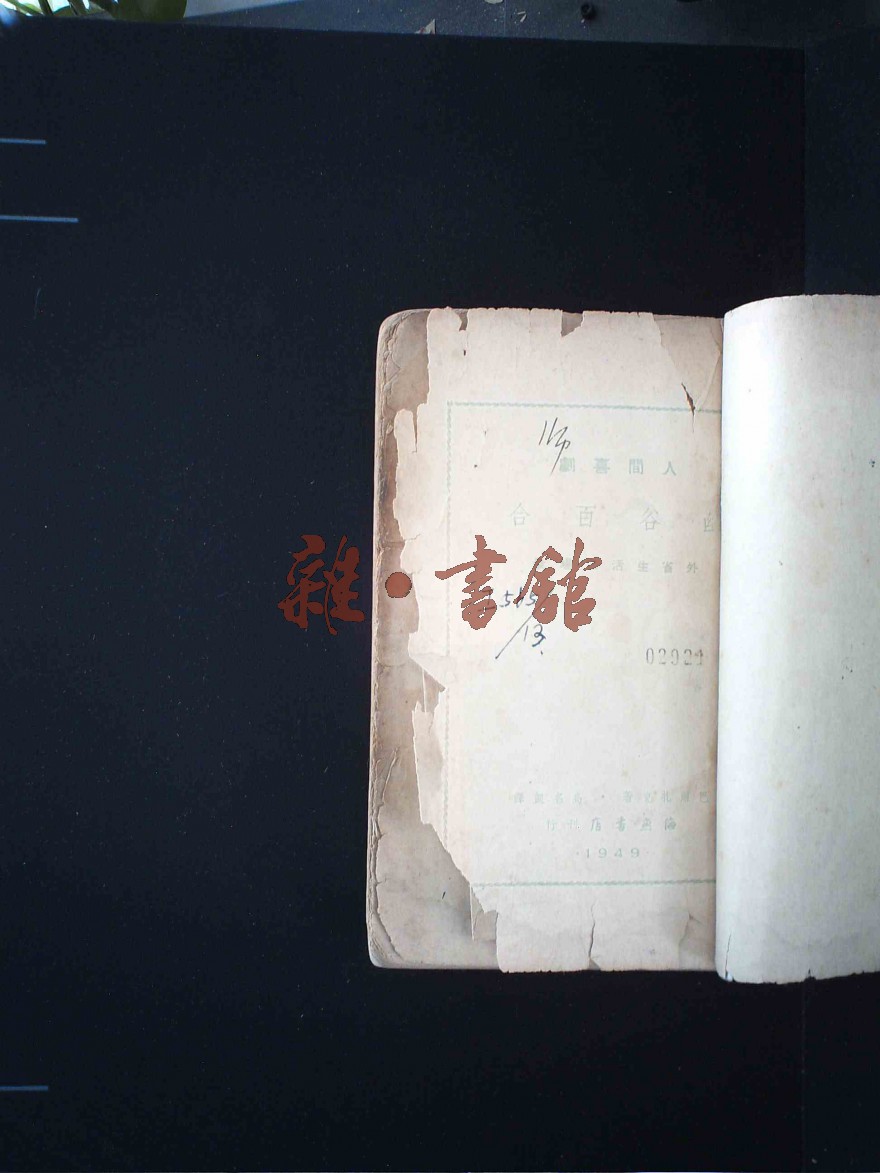 师
人間喜劇
幽谷百合
外省生活
雜·書舘
515
/13.
02924
巴爾扎克著·高名凱譯
海燕書店刊行
·1949·